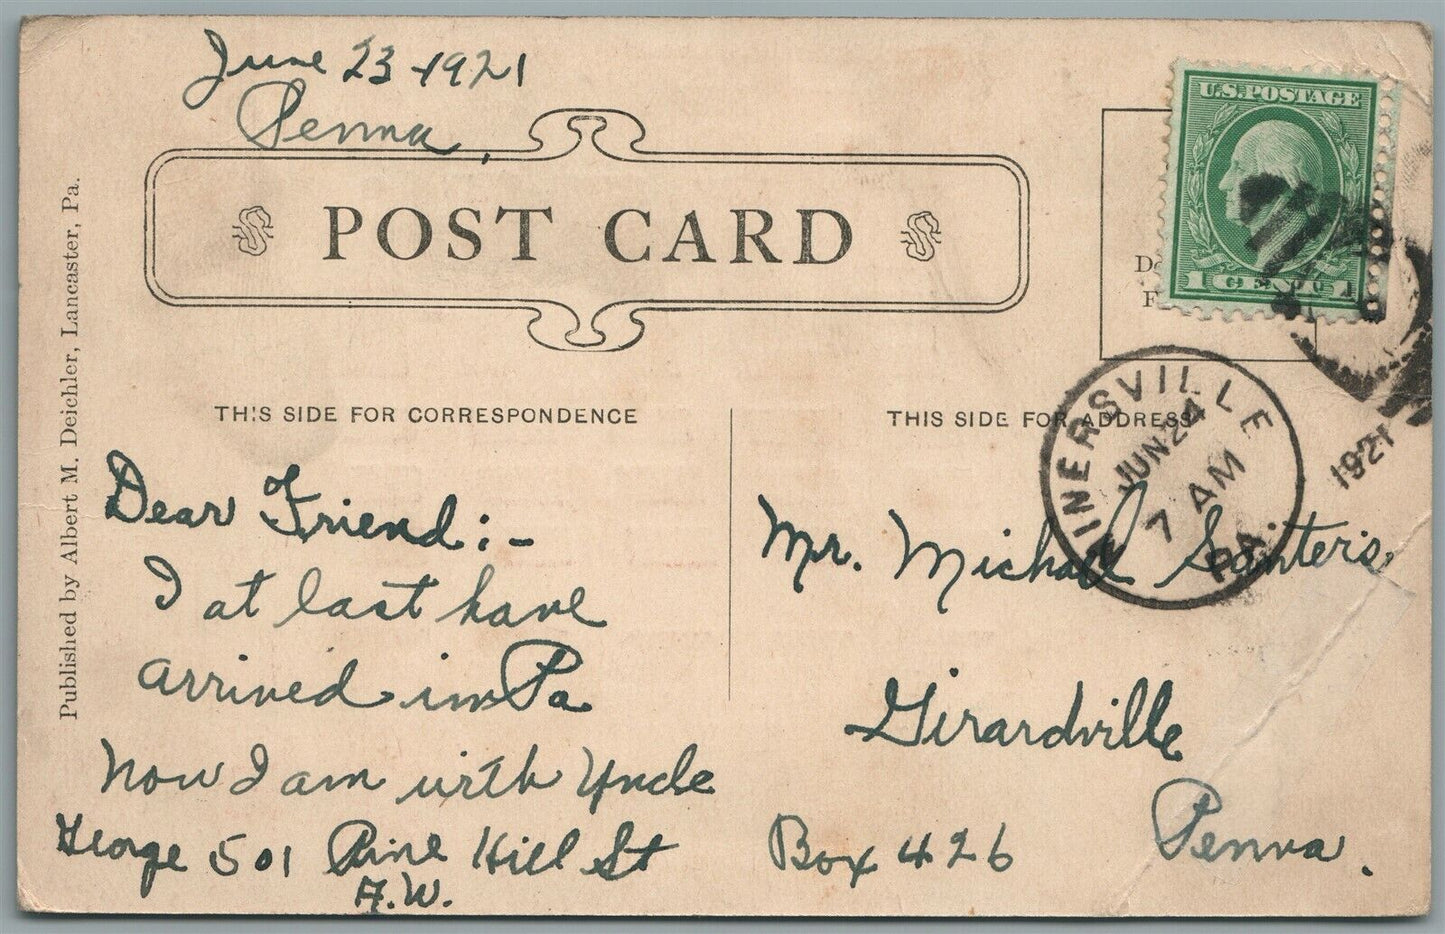 June 23-1921
Penna,
POST CARD
U.S. POSTAGE
1 CENT 1
THIS SIDE FOR CORRESPONDENCE
THIS SIDE FOR ADDRESS
INERSVILLE
JUN 24
7 AM
1921
PA.
Published by Albert M. Deichler, Lancaster, Pa.
Dear Friend:-
I at last have
arrived in Pa
Now I am with Uncle
George 501 Pine Hill St
A.W.
Mr. Michael Santeis
Girardville
Box 426 Penna.